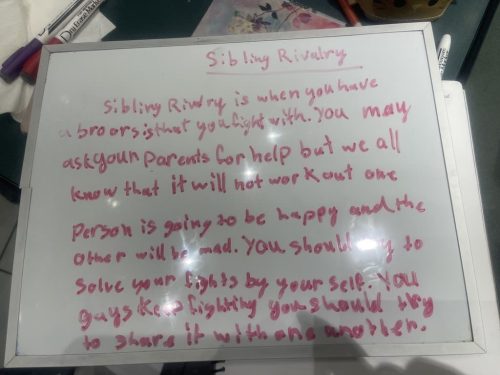 Sibling Rivalry
Sibling Rivlry is when you have
a bro or sis that you fight with. You may
ask your parents for help but we all
know that it will not work out one
Person is going to be happy and the
other will be mad. You should try to
solve your fights by your self. You
guys keep fighting you should try
to share it with one another.